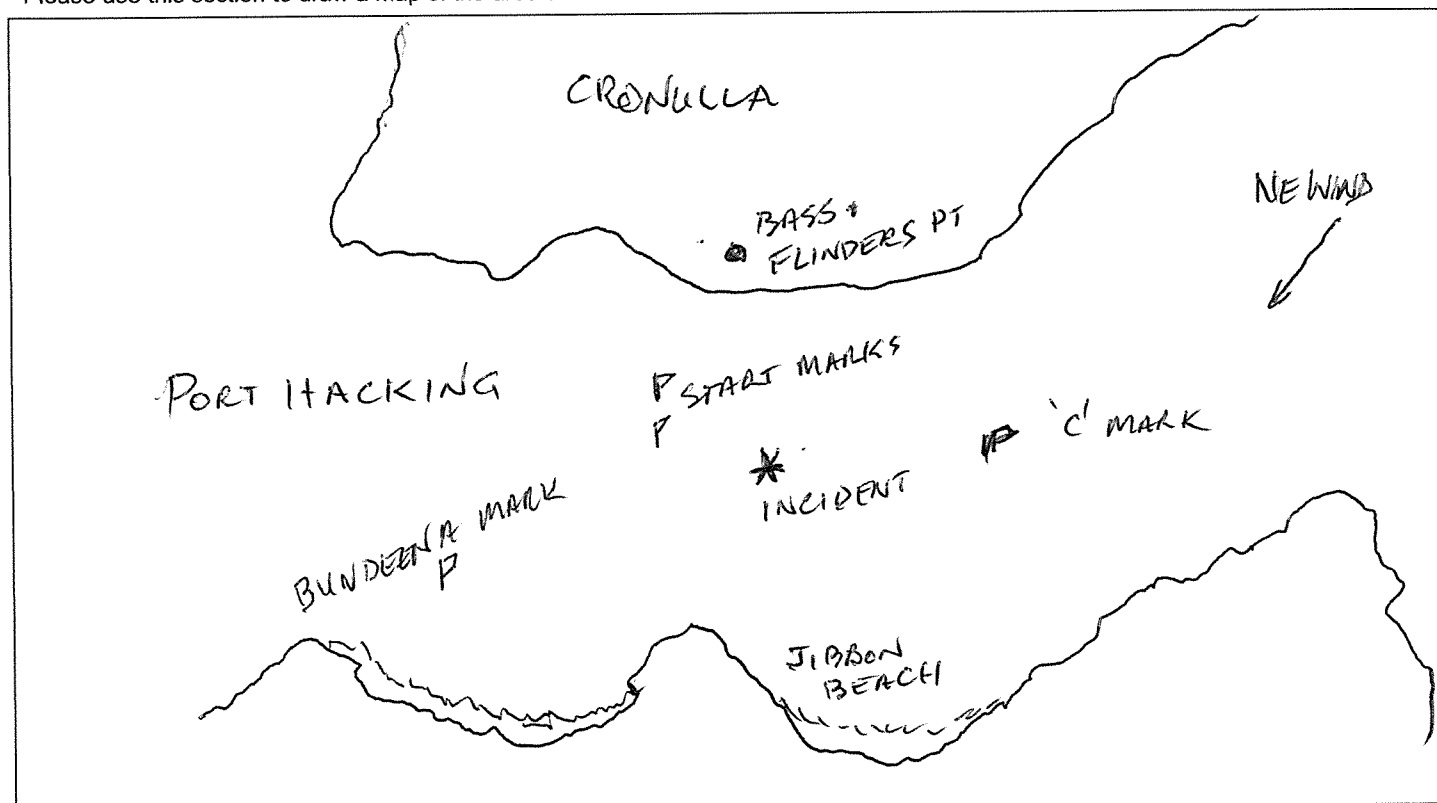 CRONULLA
NE WIND
BASS +
FLINDERS PT
START MARKS
PORT HACKING
'C' MARK
INCIDENT
BUNDEENA MARK
JIBBON
BEACH